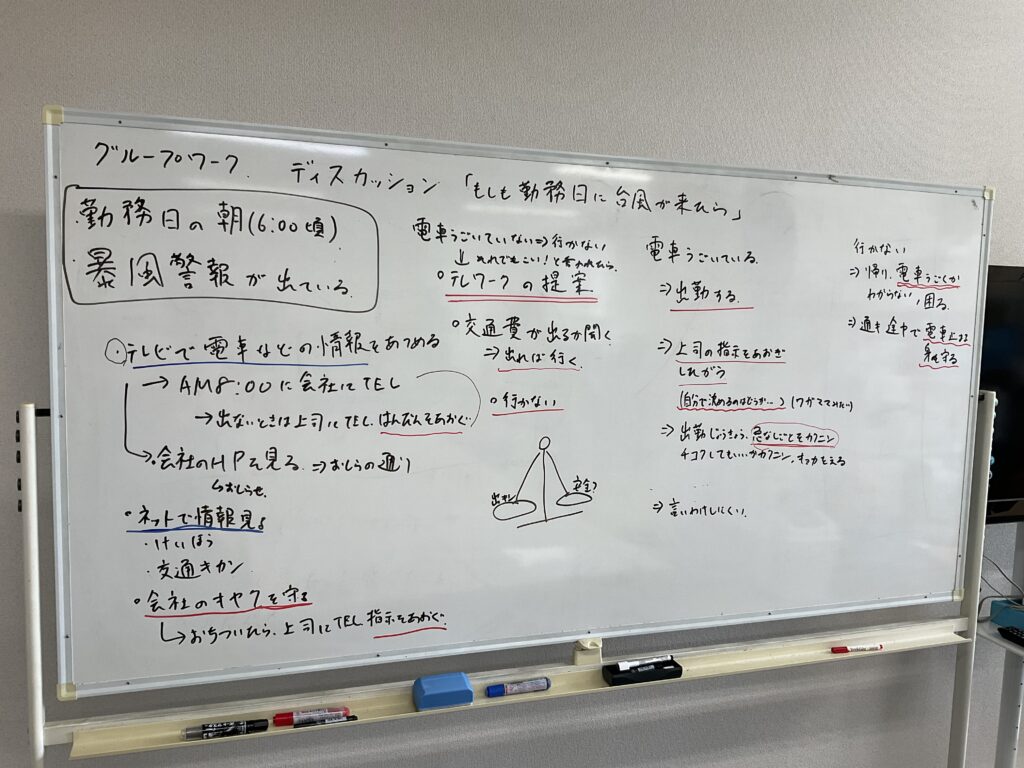 グループワーク. ディスカッション 「もしも勤務日に台風が来たら」
勤務日の朝(6:00頃)
暴風警報が出ている.
・テレビで電車などの情報をあつめる
→ AM8:00に会社にTEL
→出ないときは上司にTEL. はんだんをあおぐ
・会社のHPを見る. ⇒おしらの通り
↳おしらせ.
・ネットで情報見る
・けいほう
・交通キカン
・会社のキヤクを守る
↳おちついたら、上司にTEL 指示をあおぐ.
電車うごいていない⇒行かない
↓ それでもこい!と言われたら.
・テレワークの提案
・交通費が出るか聞く
⇒出れば行く.
・行かない
出社
安全?
電車うごいている.
⇒出勤する.
⇒上司の指示をあおぎ
したがう
(自分で決めるのはどうか…)
⇒出勤じょうきょう. 急なしごとをカクニン
チコクしてもいいかカクニン.
⇒言いわけしにくい.
行かない
⇒帰り、電車うごくか
わからない, 困る.
⇒途中で電車止まる
身を守る